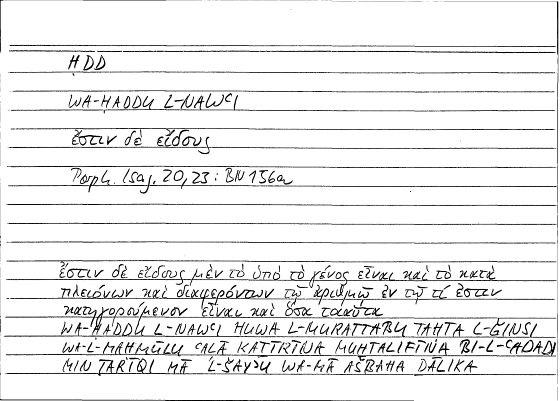 ḤDD
WA-ḤADDU L-NAWʿI
ἔστιν δὲ εἴδους
Porph. Isag. 20,23 : BN 156a
ἔστιν δὲ εἴδους μὲν τὸ ὑπὸ τὸ γένος εἶναι καὶ τὸ κατὰ
πλειόνων καὶ διαφερόντων τῷ ἀριθμῷ ἐν τῷ τί ἐστιν
κατηγορούμενον εἶναι καὶ ὅσα τοιαῦτα
WA-ḤADDU L-NAWʿI HUWA L-MURATTABU TAḤTA L-ǦINSI
WA-L-MAḤMŪLU ʿALĀ KAṮĪRĪNA MUḪTALIFĪNA BI-L-ʿADADI
MIN ṬARĪQI MĀ L-ŠAYʾU WA-MĀ AŠBAHA ḎĀLIKA